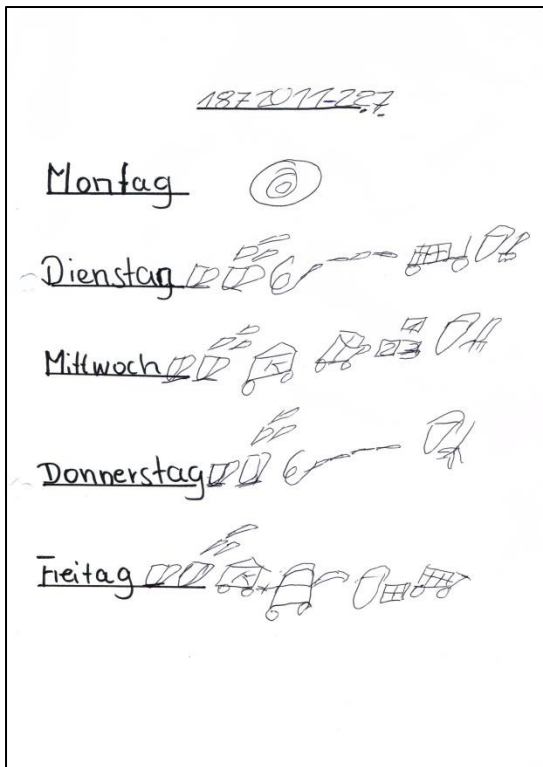 18.7.2011-22.7.
Montag
Dienstag
Mittwoch
Donnerstag
Freitag